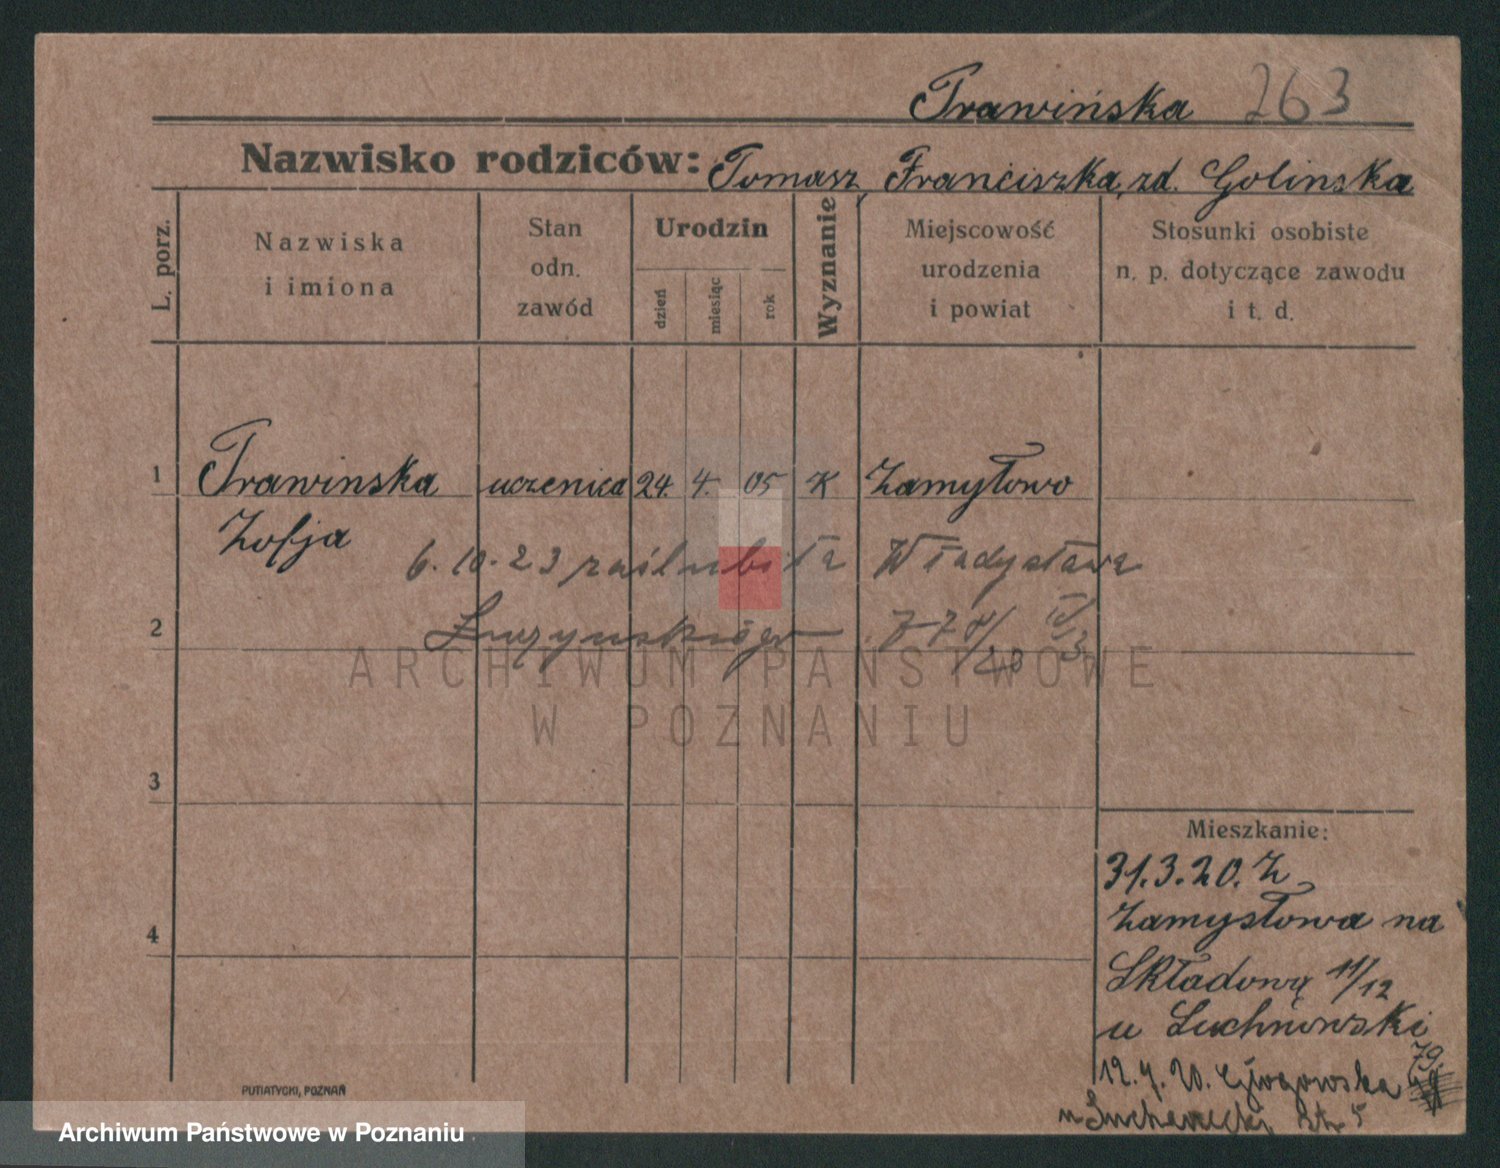 Trawińska 263
Nazwisko rodziców: Tomasz, Franciszka, zd. Golinska
L. porz.
Nazwiska i imiona
Stan odn. zawód
Urodzin
dzień
miesiąc
rok
Wyznanie
Miejscowość urodzenia i powiat
Stosunki osobiste n. p. dotyczące zawodu i t. d.
1 Trawinska uczenica 24. 4. 05 K Zamysłowo
Zofja
6.10.23 zaślubiła Władysława
2
3
4
ARCHIWUM PAŃSTWOWE
W POZNANIU
Mieszkanie:
31.3.20. Z
Zamysłowa na
Składową 11/12
u Luchnowski
79.
12.4.20. Głogowska
u
PUTIATYCKI, POZNAŃ
Archiwum Państwowe w Poznaniu